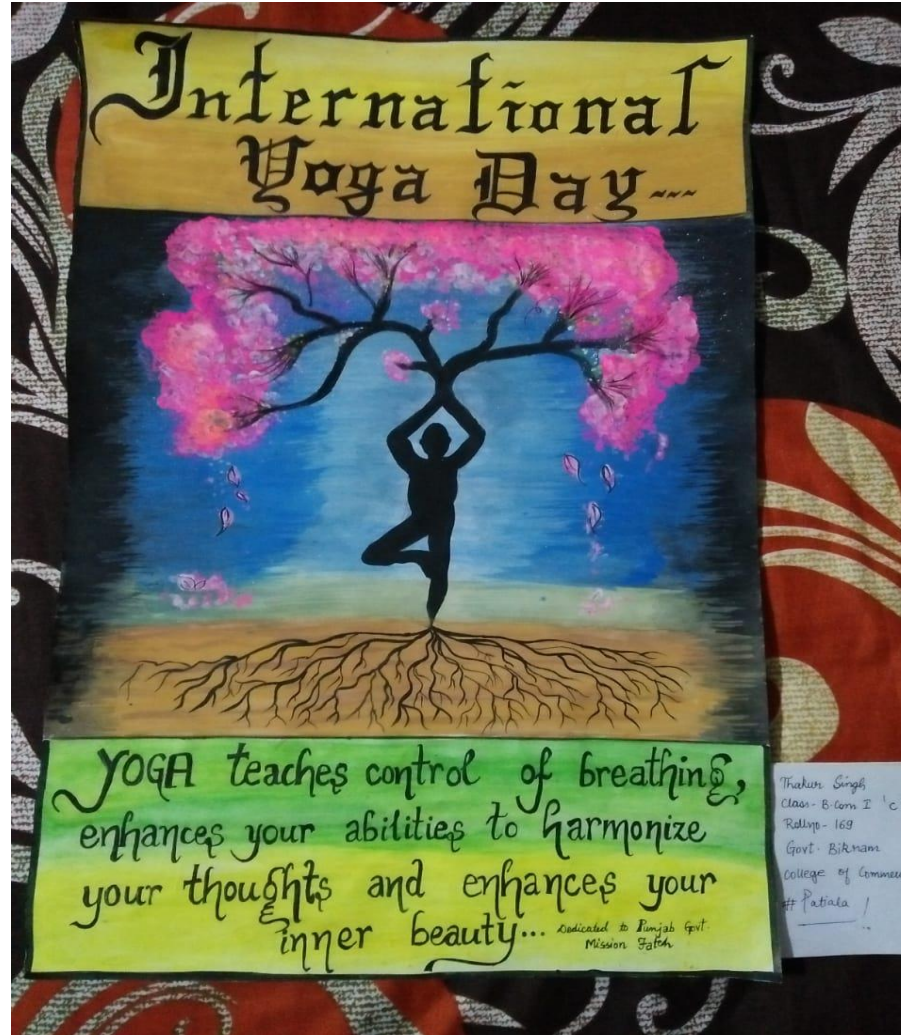 International
Yoga Day~~~
YOGA teaches control of breathing,
enhances your abilities to harmonize
your thoughts and enhances your
inner beauty...
Dedicated to Punjab Govt.
Mission Fateh
Thakur Singh
Class - B.Com I 'C
Rollno - 169
Govt. Bikram
College of Commer
# Patiala !